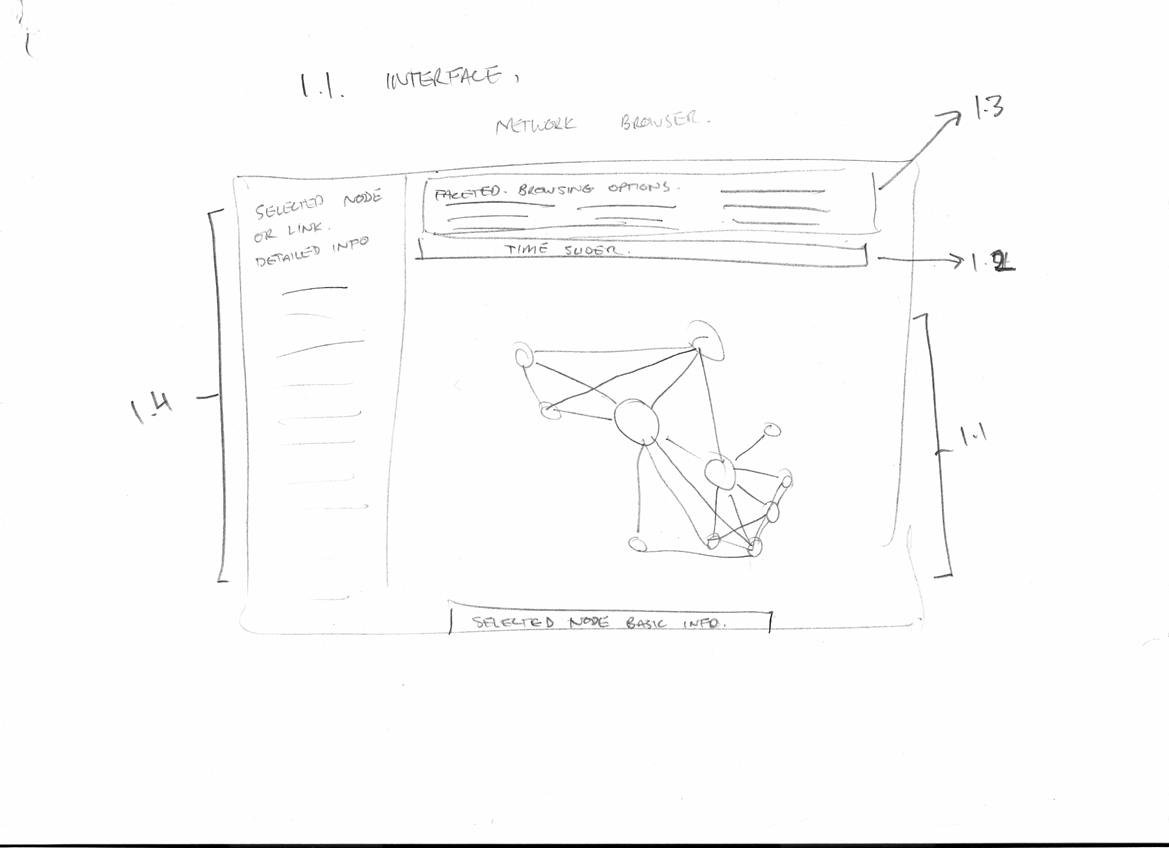 1.1. INTERFACE,
NETWORK BROWSER.
1.3
SELECTED NODE
OR LINK.
DETAILED INFO
FACETED. BROWSING OPTIONS.
TIME SLIDER.
1.2
1.4
1.1
SELECTED NODE BASIC INFO.